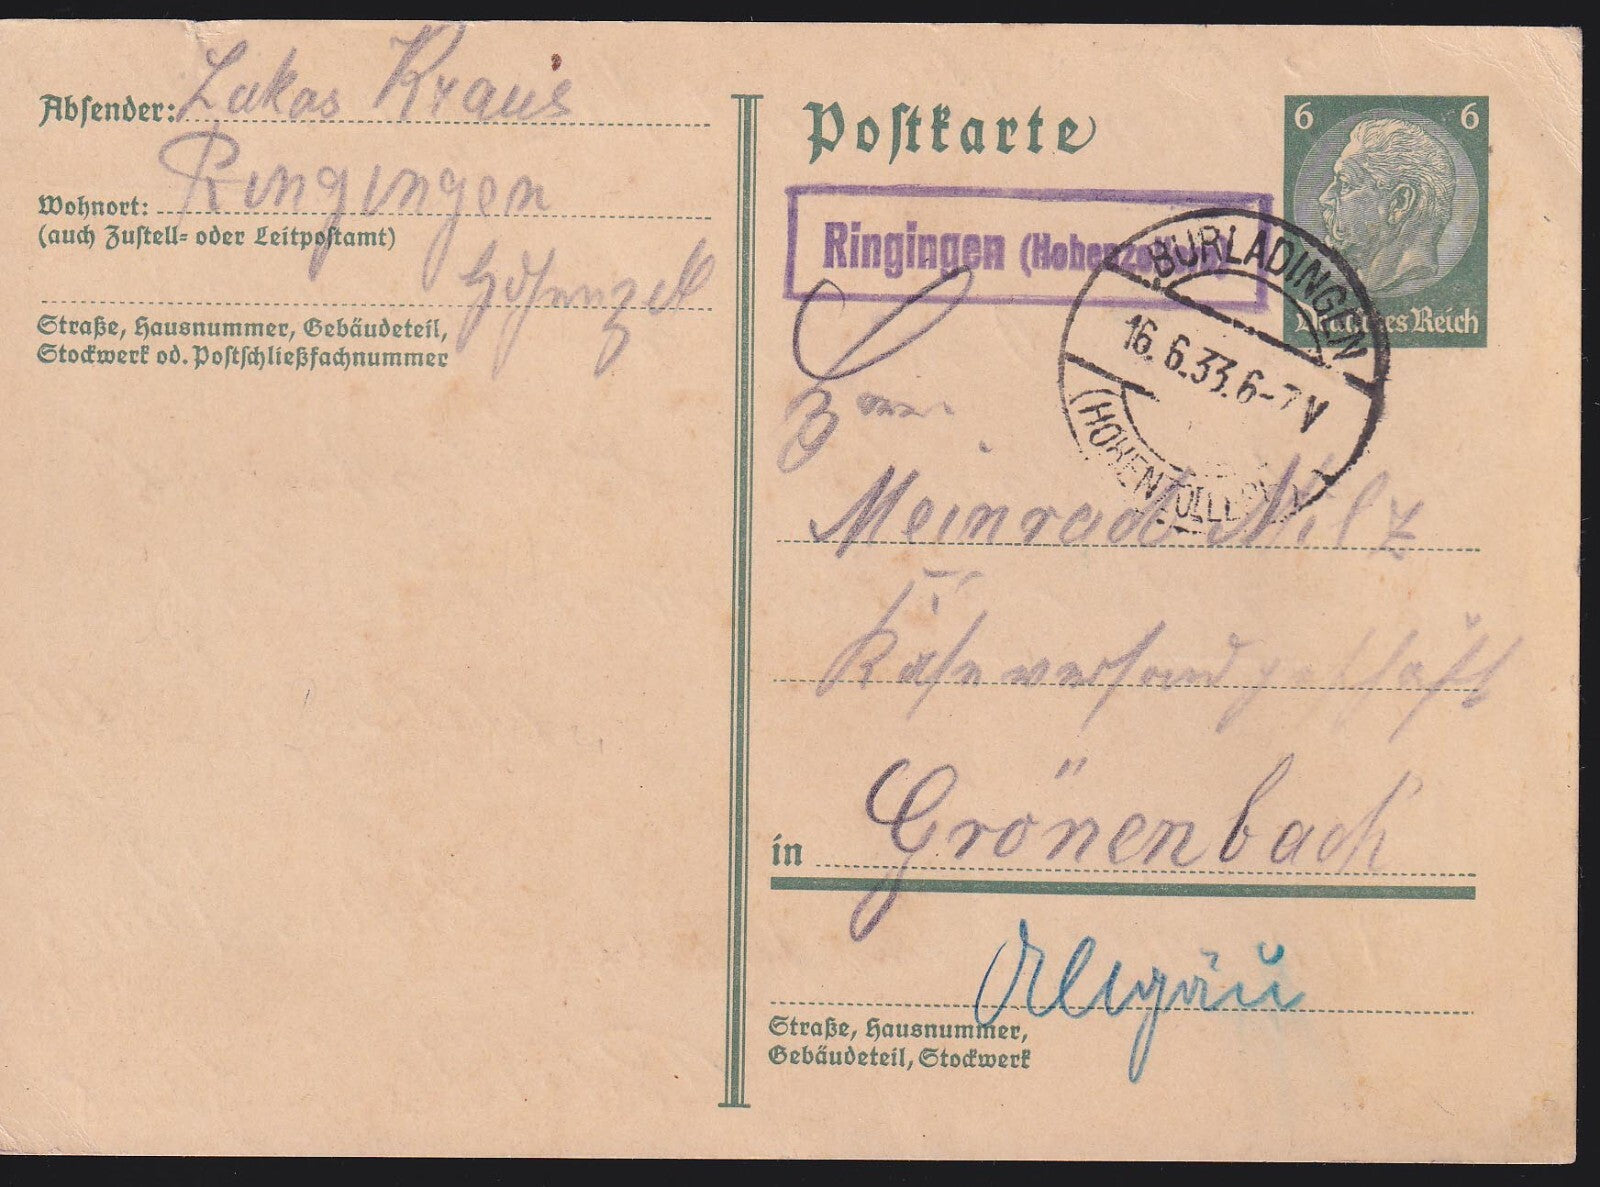 Absender: Lukas Kraus
Wohnort: Ringingen
(auch Zustell- oder Leitpostamt)
Hohenzoll
Straße, Hausnummer, Gebäudeteil,
Stockwerk od. Postschließfachnummer
Postkarte
6 6
Deutsches Reich
Ringingen (Hohenzollern)
BURLADINGEN
16.6.33.6-7V
(HOHENZOLLERN)
Meinrad Milz
Käseversandgeschäft
in Grönenbach
Allgäu
Straße, Hausnummer,
Gebäudeteil, Stockwerk